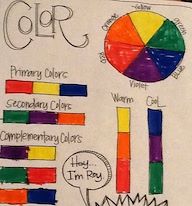 COLOR
Yellow
Orange
Green
Red
Blue
Violet
Primary Colors
Warm
Cool
Secondary Colors
Complementary Colors
Hey...
I'm Roy